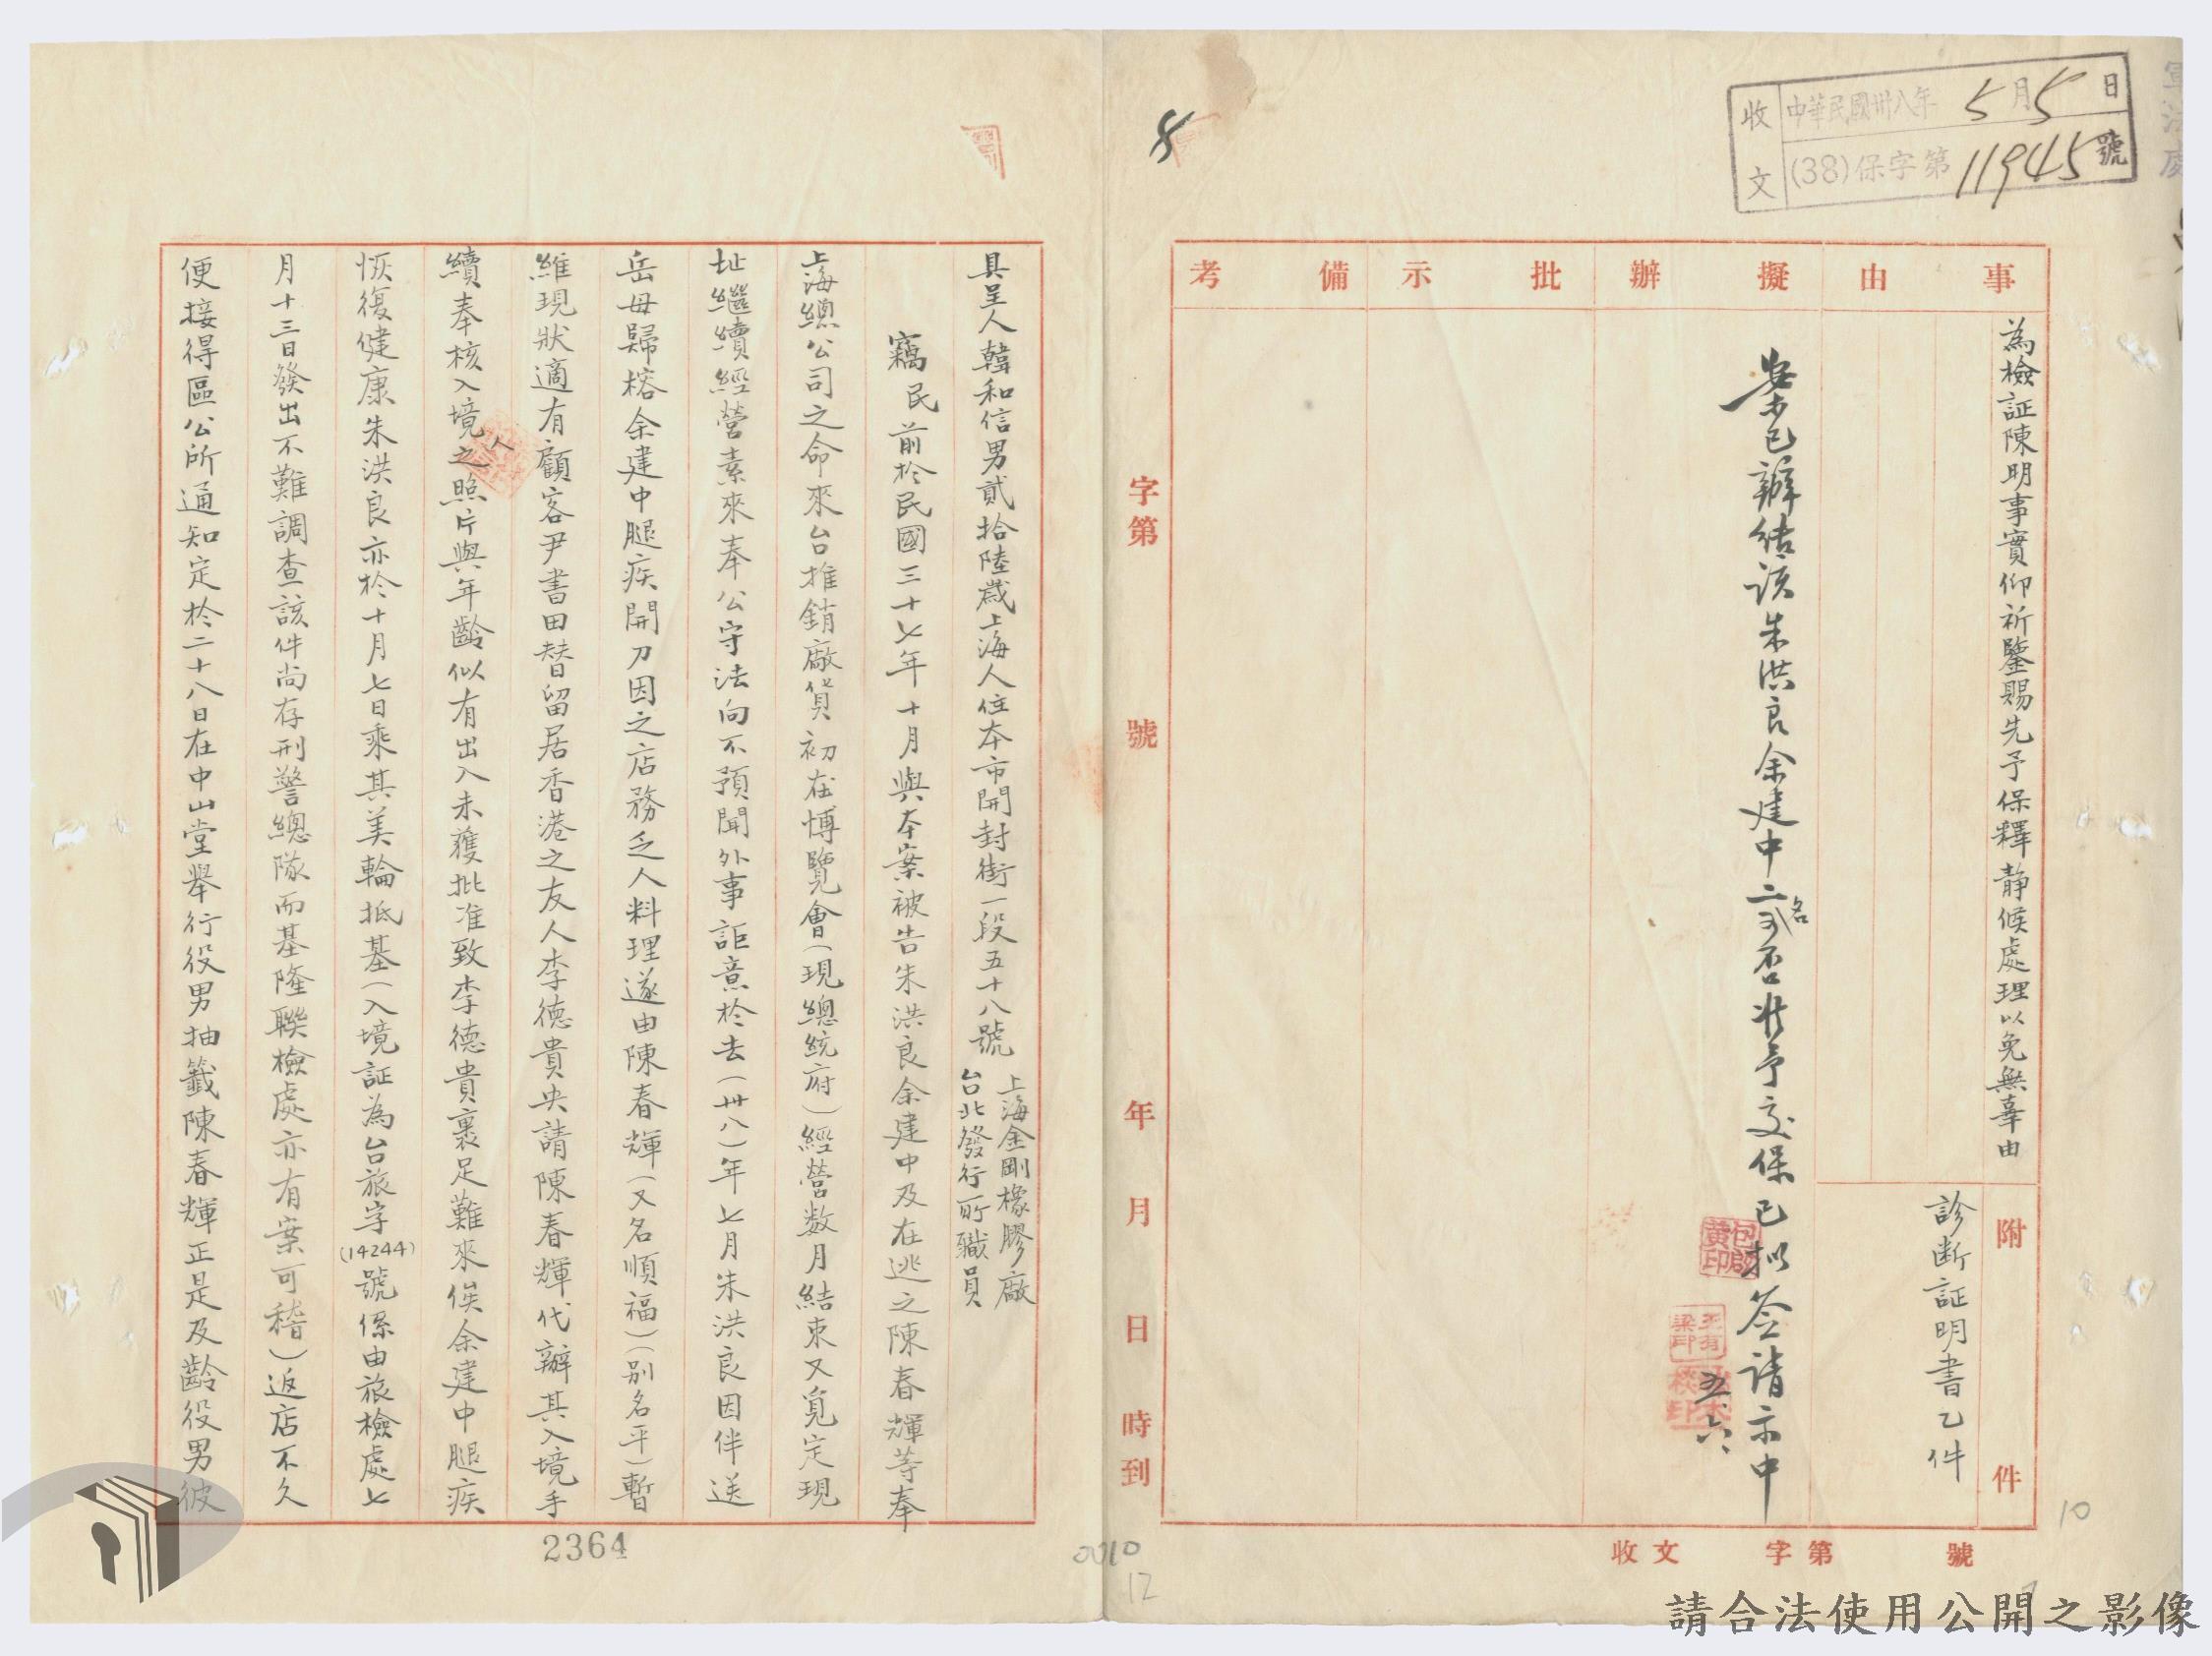 軍法處
收文
中華民國卅八年5月5日
(38)保字第11945號
事由
擬辦
批示
備考
為檢証陳明事實仰祈鑒賜先予保釋靜候處理以免無辜由
附件
診断証明書乙件
案已辦結該朱洪良余建中二名可否准予交保已拟签請示中
五.六.
字第 號
年 月 日 時到
收文 字第 號
8
具呈人韓和信男貳拾陸歲上海人住本市開封街一段五十八號
上海金剛橡膠廠
台北發行所職員
竊民前於民國三十七年十月與本案被告朱洪良余建中及在逃之陳春輝等奉
上海總公司之命來台推銷廠貨初在博覽會(現總統府)經營数月結束又覓定現
址繼續經營素來奉公守法向不預聞外事詎意於去(卅八)年七月朱洪良因伴送
岳母歸榕余建中腿疾開刀因之店務乏人料理遂由陳春輝(又名順福)(别名平)暫
維現狀適有顧客尹書田替留居香港之友人李德貴央請陳春輝代辦其入境手
續奉核入境人之照片與年齡似有出入未獲批准致李德貴裹足難來俟余建中腿疾
恢復健康朱洪良亦於十月七日乘其美輪抵基(入境証為台旅字(14244)號係由旅檢處七
月十三日發出不難調查該件尚存刑警總隊而基隆聯檢處亦有案可稽)返店不久
便接得區公所通知定於二十八日在中山堂舉行役男抽籤陳春輝正是及齡役男彼
2364
0010
12
10
請合法使用公開之影像